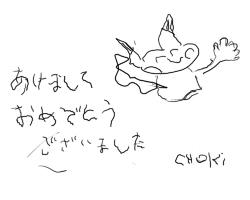 あけまして
おめでとう
ございました
CHOKi